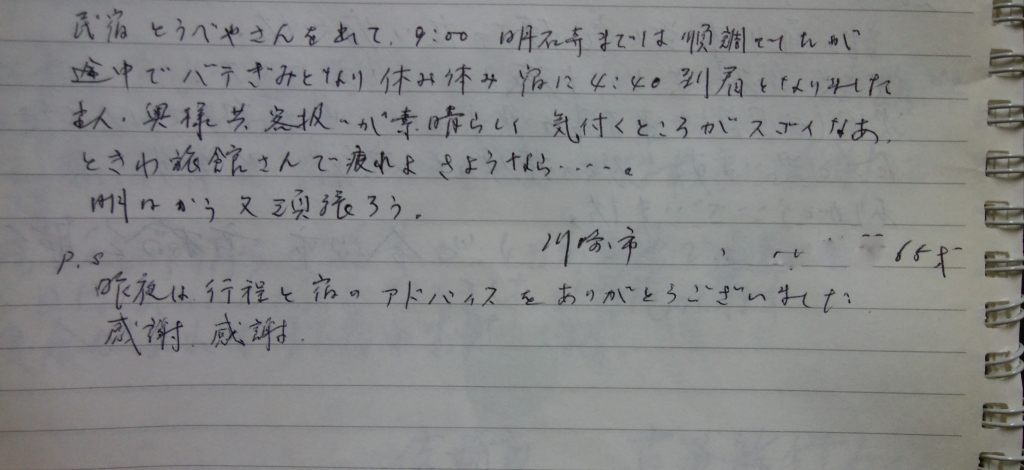 民宿 とうべやさんを出て、9:00 明石寺までは 順調でしたが
途中でバテぎみとなり 休み休み 宿に 4:40 到着となりました
主人・奥様共 客扱いが素晴らしく 気付くところがスゴイなあ。
ときわ旅館さんで疲れよ さようなら・・・・・。
明日から又頑張ろう。
川崎市 65才
P.S
昨夜は、行程と宿のアドバイスをありがとうございました
感謝、感謝。